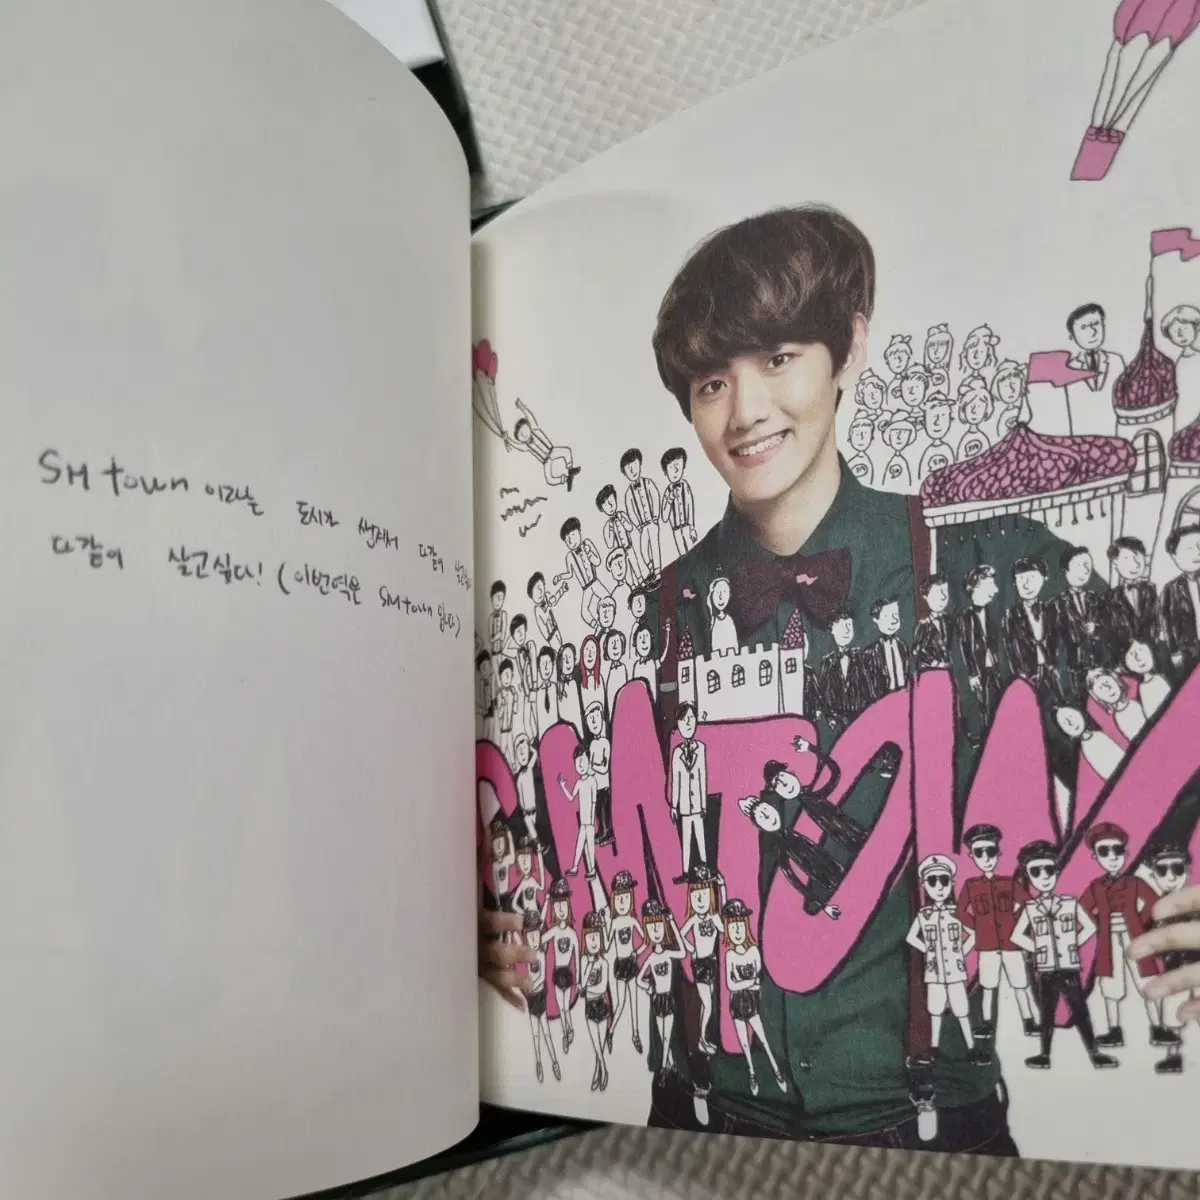 SM town 이라는 도시가 생겨서 다같이 살고
다같이 살고싶다! (이번역은 SM town 입니다)
SMTOW